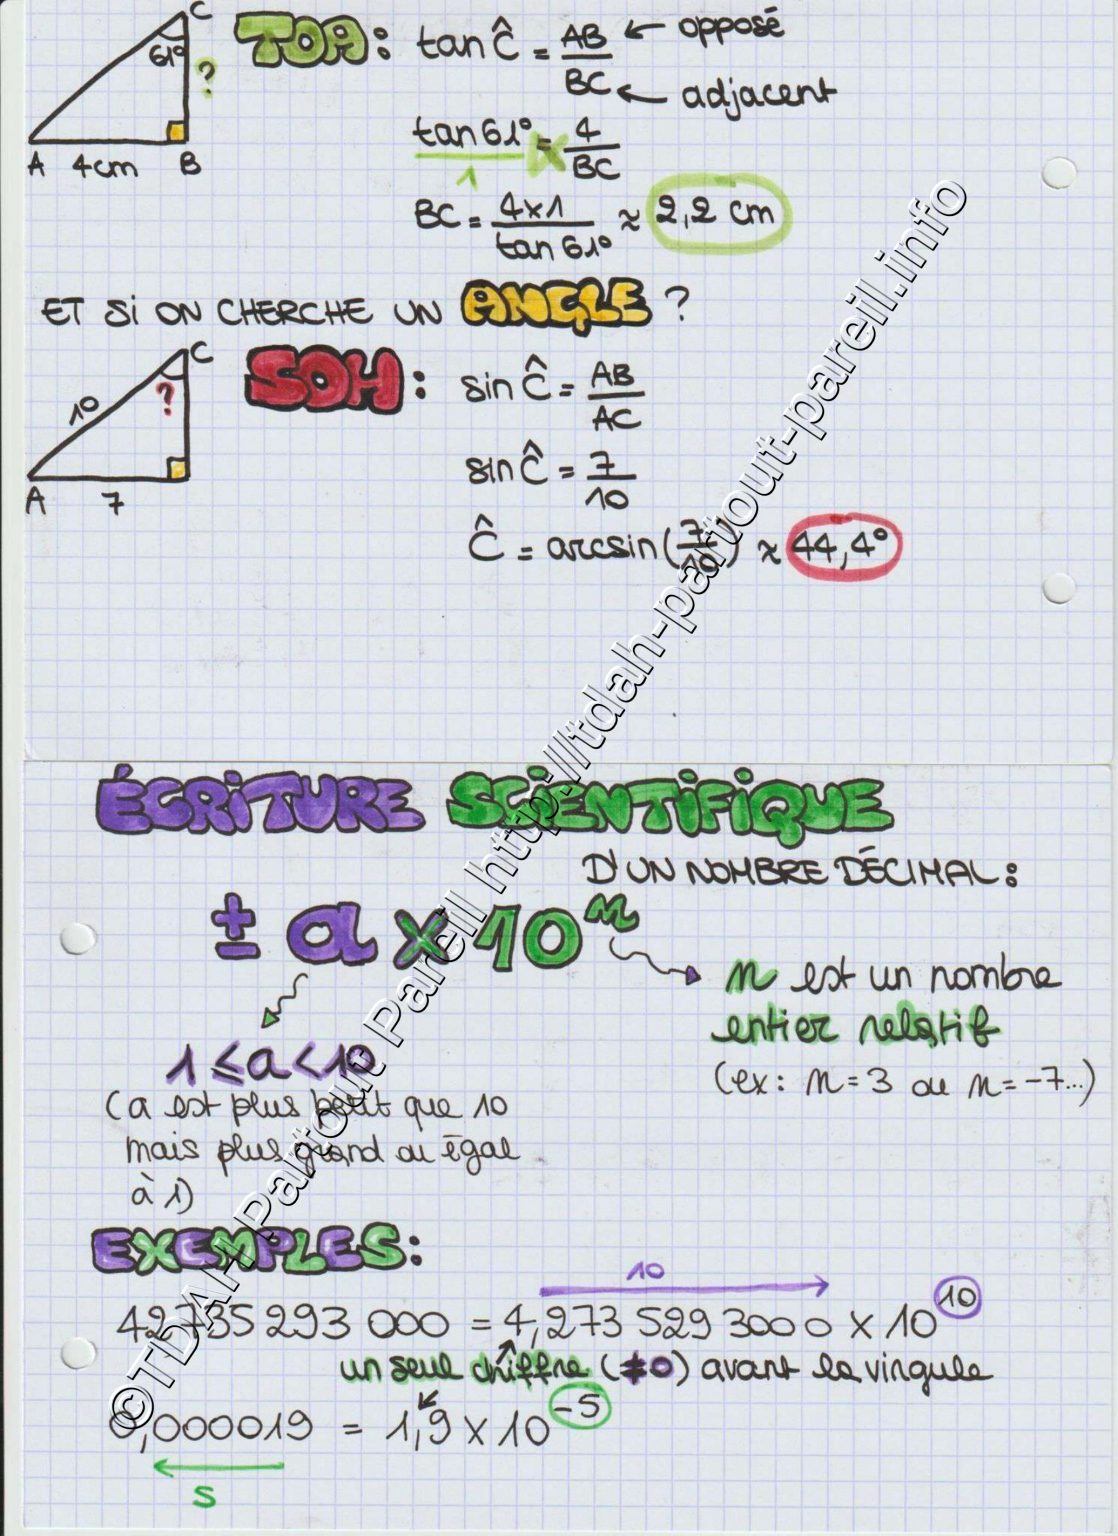 C
61°
?
A 4cm B
TOA: tan Ĉ = AB/BC ← opposé
← adjacent
tan 61° = 4/BC
1
BC = 4x1/tan 61° ≈ 2,2 cm
ET SI ON CHERCHE UN ANGLE ?
C
10 ?
A 7
SOH: sin Ĉ = AB/AC
sin Ĉ = 7/10
Ĉ = arcsin(7/10) ≈ 44,4°
ÉCRITURE SCIENTIFIQUE
D'UN NOMBRE DÉCIMAL:
± a x 10ⁿ
n est un nombre
entier relatif
(ex: n = 3 ou n = -7...)
1 ≤ a < 10
(a est plus petit que 10
mais plus grand ou égal
à 1)
EXEMPLES:
10
42735 293 000 = 4,273 529 3000 x 10^10
un seul chiffre (≠0) avant la virgule
0,000019 = 1,9 x 10^-5
5
©TDAH Partout Pareil http://tdah-partout-pareil.info